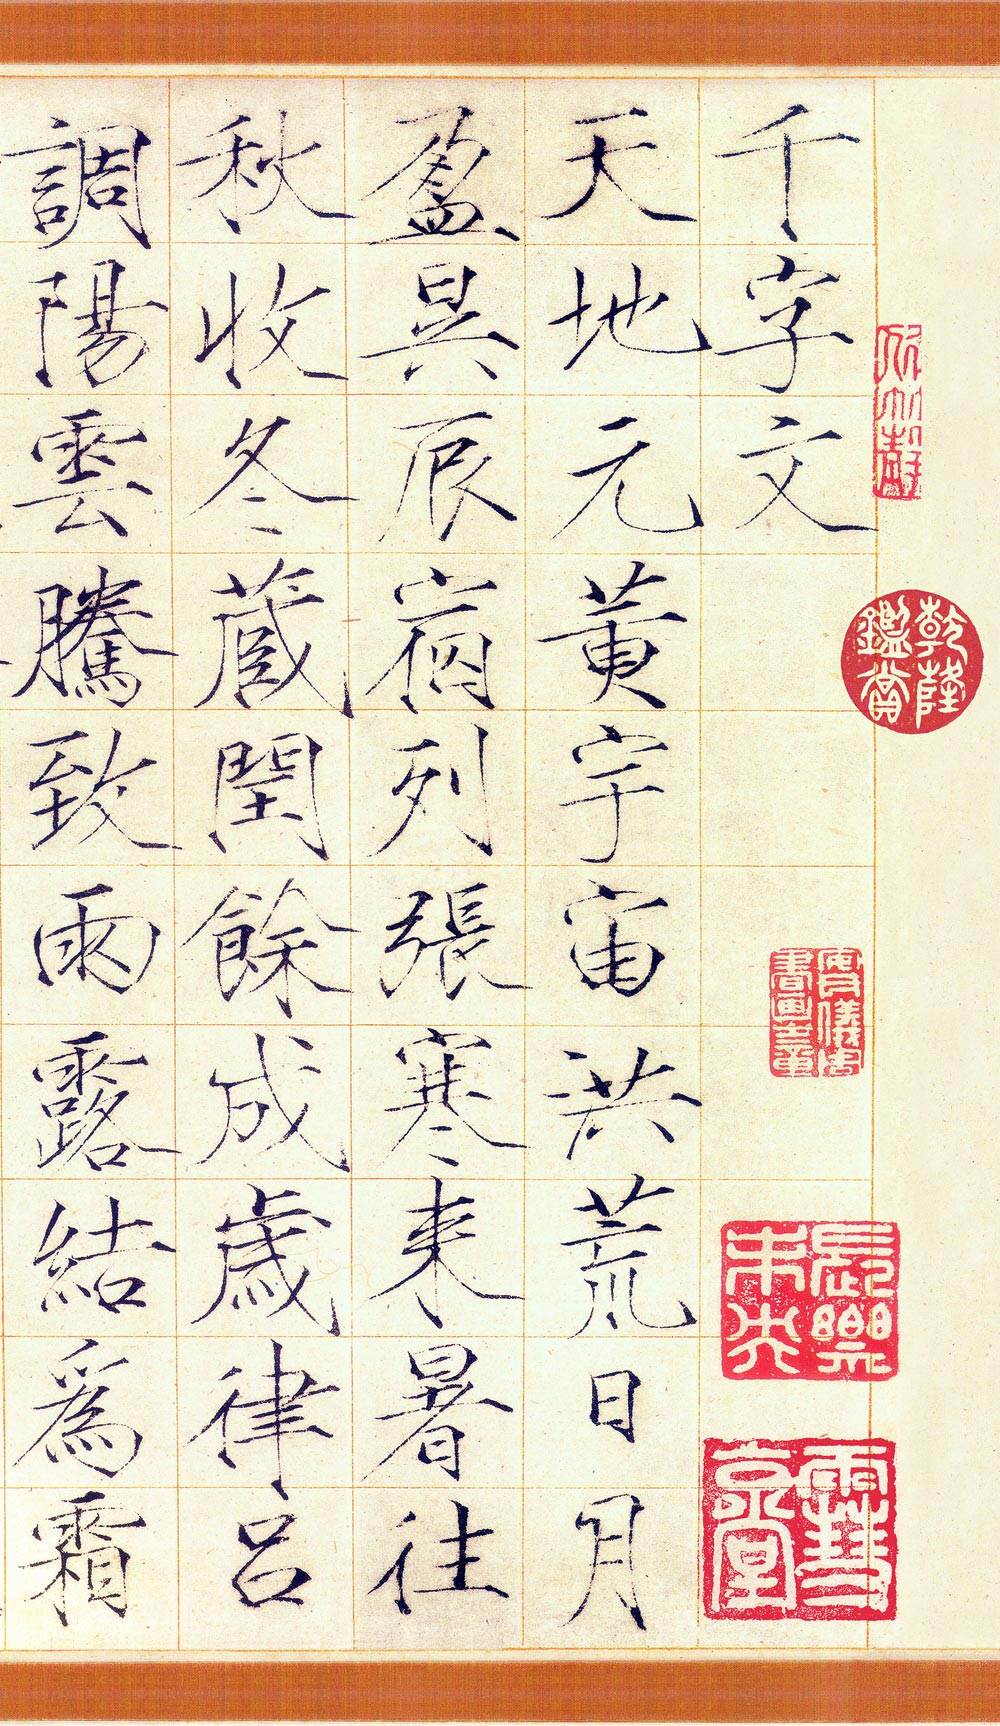 千字文
天地元黄宇宙洪荒日月
盈昃辰宿列張寒来暑往
秋收冬蔵閏餘成歳律呂
調陽雲騰致雨露結爲霜
乾隆鑑賞
長樂未央